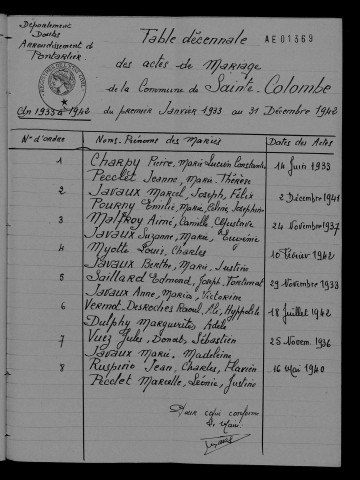 Département
Doubs
Arrondissement de
Pontarlier
An 1933 à 1942
Table décennale
AE01369
des actes de Mariage
de la Commune de Sainte-Colombe
du premier Janvier 1933 au 31 Décembre 1942
N° d'ordre Noms-Prénoms des Mariés Dates des Actes
1 Charpy Pierre, Marie Lucien Constantin 14 Juin 1933
Pecclet Jeanne, Marie Thérèse
2 Javaux Marcel, Joseph, Félix 2 Décembre 1941
Pourny Emilie, Marie, Céline, Joséphine
3 Malfroy Aimé, Camille, 24 Novembre 1937
Javaux Suzanne, Marie, Eugénie
4 Myotte Louis, Charles 10 Février 1942
Javaux Berthe, Marie, Justine
5 Saillard Edmond, Joseph, Fortunat 29 Novembre 1933
Javaux Anne, Maria, Victorine
6 Vermot-Desroches Raoul, Ali, Hyppolite 18 Juillet 1942
Dulphy Marguerite, Adèle
7 Vuez Jules, Donat, Sébastien 25 Novem. 1936
Javaux Marie, Madeleine
8 Ruspino Jean, Charles, Flavien 16 Mai 1940
Pecclet Marcelle, Léonie, Justine
Pour copie conforme
Le Maire